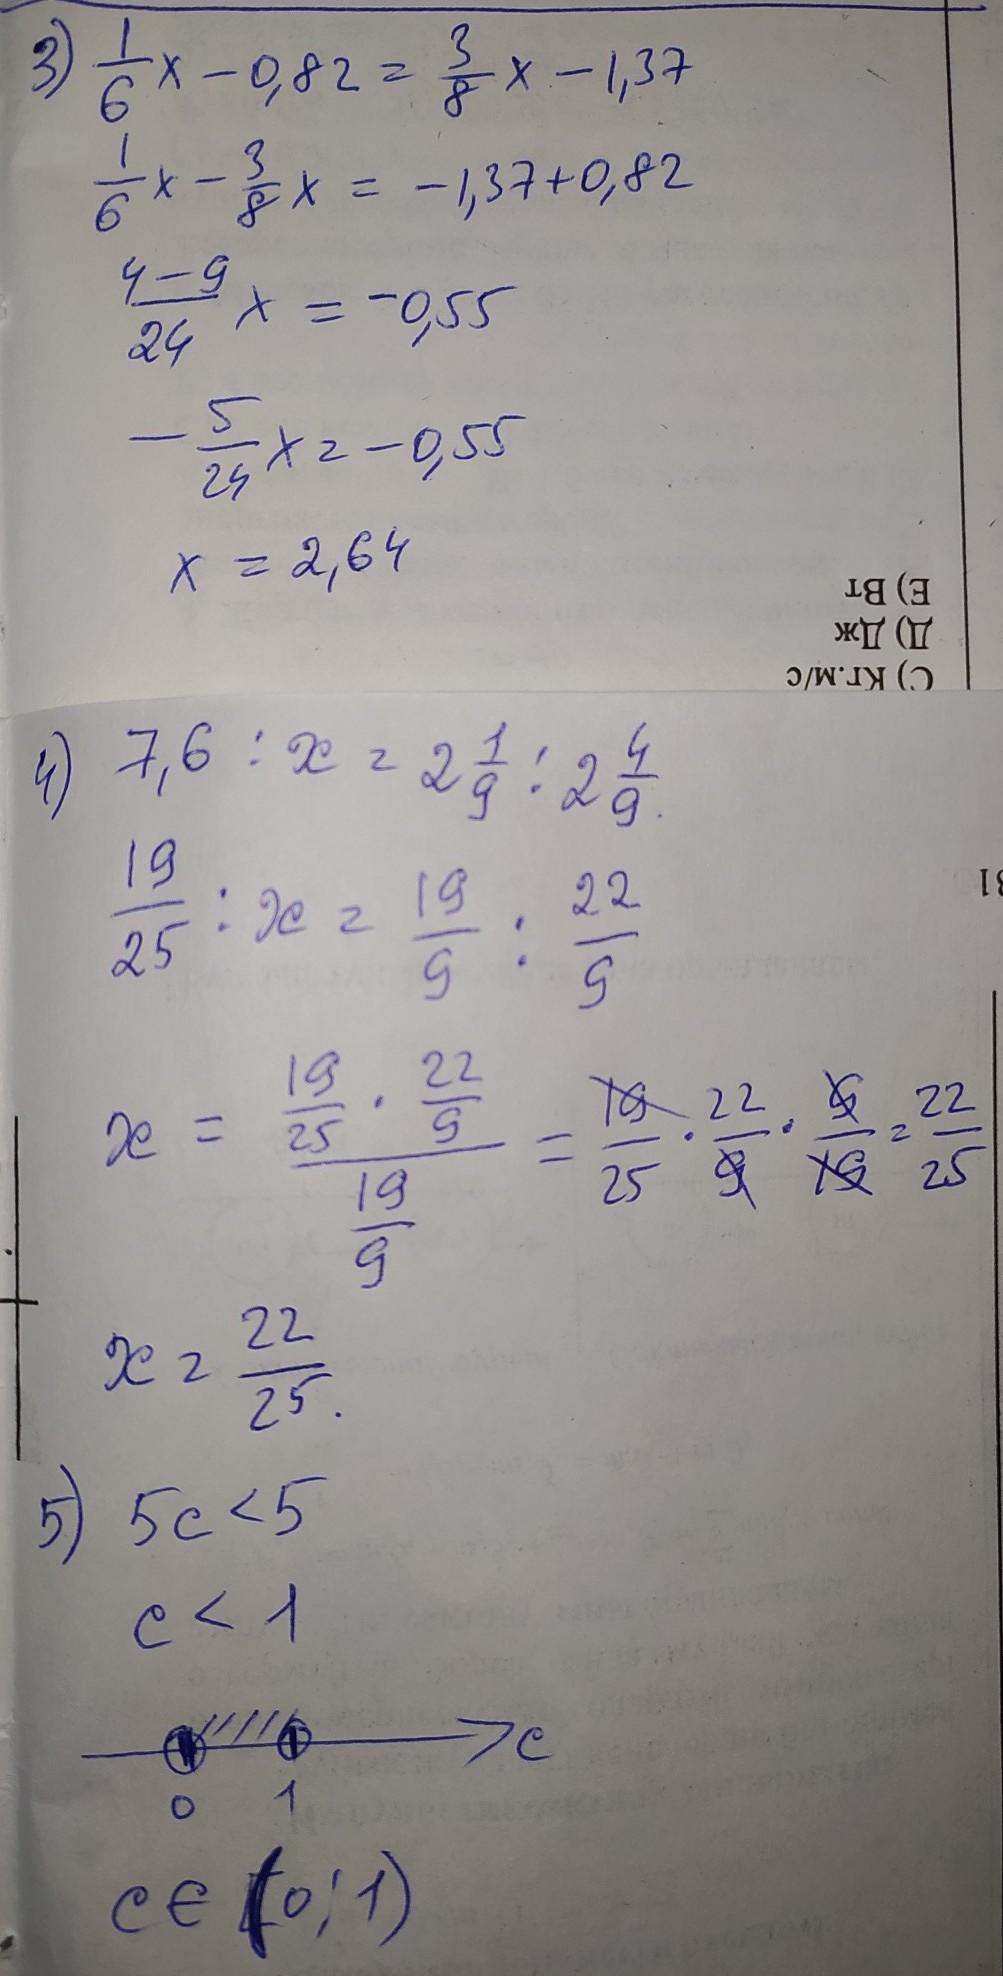 3) 1/6 x - 0,82 = 3/8 x - 1,37
1/6 x - 3/8 x = -1,37+0,82
4-9/24 x = -0,55
- 5/24 x = -0,55
x = 2,64
Е) Вт
Д) Дж
С) Кг.м/с
4) 7,6 : x = 2 1/9 : 2 4/9.
19/25 : x = 19/9 : 22/9
x = 19/25 · 22/9 / 19/9 = 19/25 · 22/9 · 9/19 = 22/25
x = 22/25.
5) 5c < 5
c < 1
c
0 1
c ∈ (0; 1)